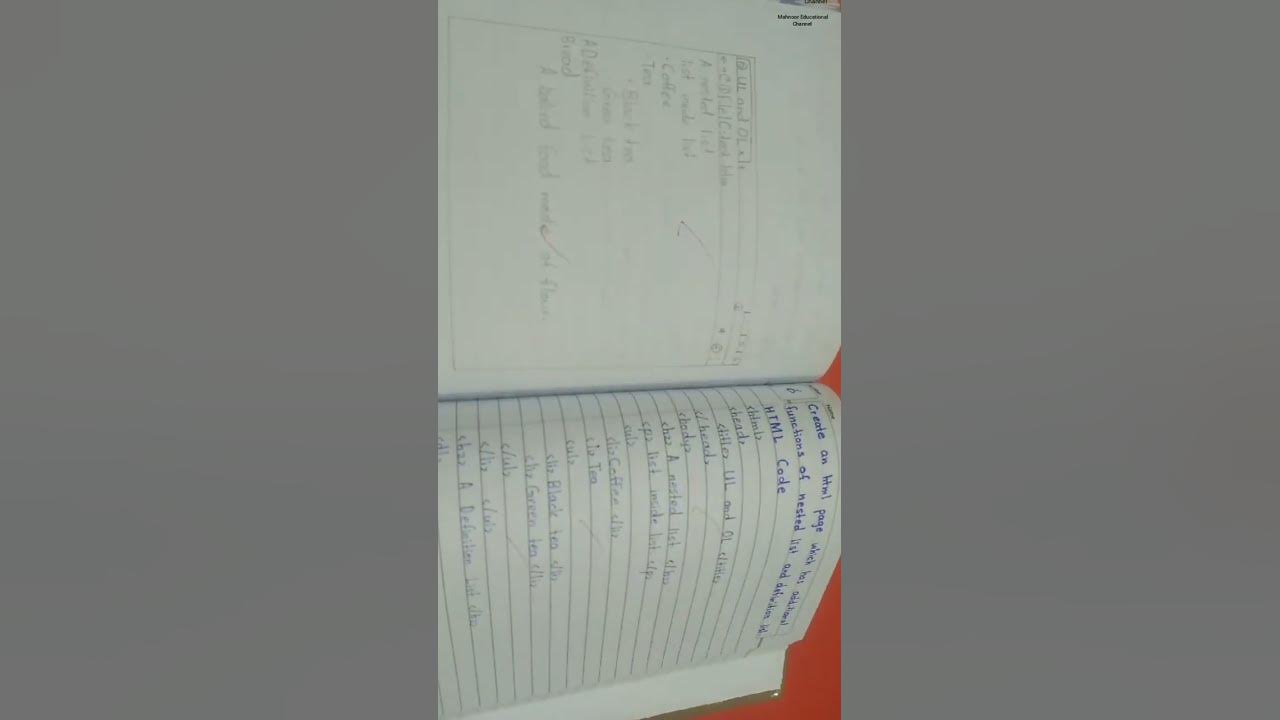 Channel
Mahnoor Educational
Channel
UL and OL
A nested list
list inside list
• Coffee
• Tea
• Black tea
• Green tea
A Definition List
Bread
A baked food made of flour.
6
Create an html page which has additional
functions of nested list and definition list.
HTML Code
<html>
<head>
<title> UL and OL </title>
</head>
<body>
<h2> A nested list </h2>
<p> list inside list </p>
<ul>
<li> Coffee </li>
<li> Tea
<ul>
<li> Black tea </li>
<li> Green tea </li>
</ul>
</li> </ul>
<h2> A Definition List </h2>
<dl>